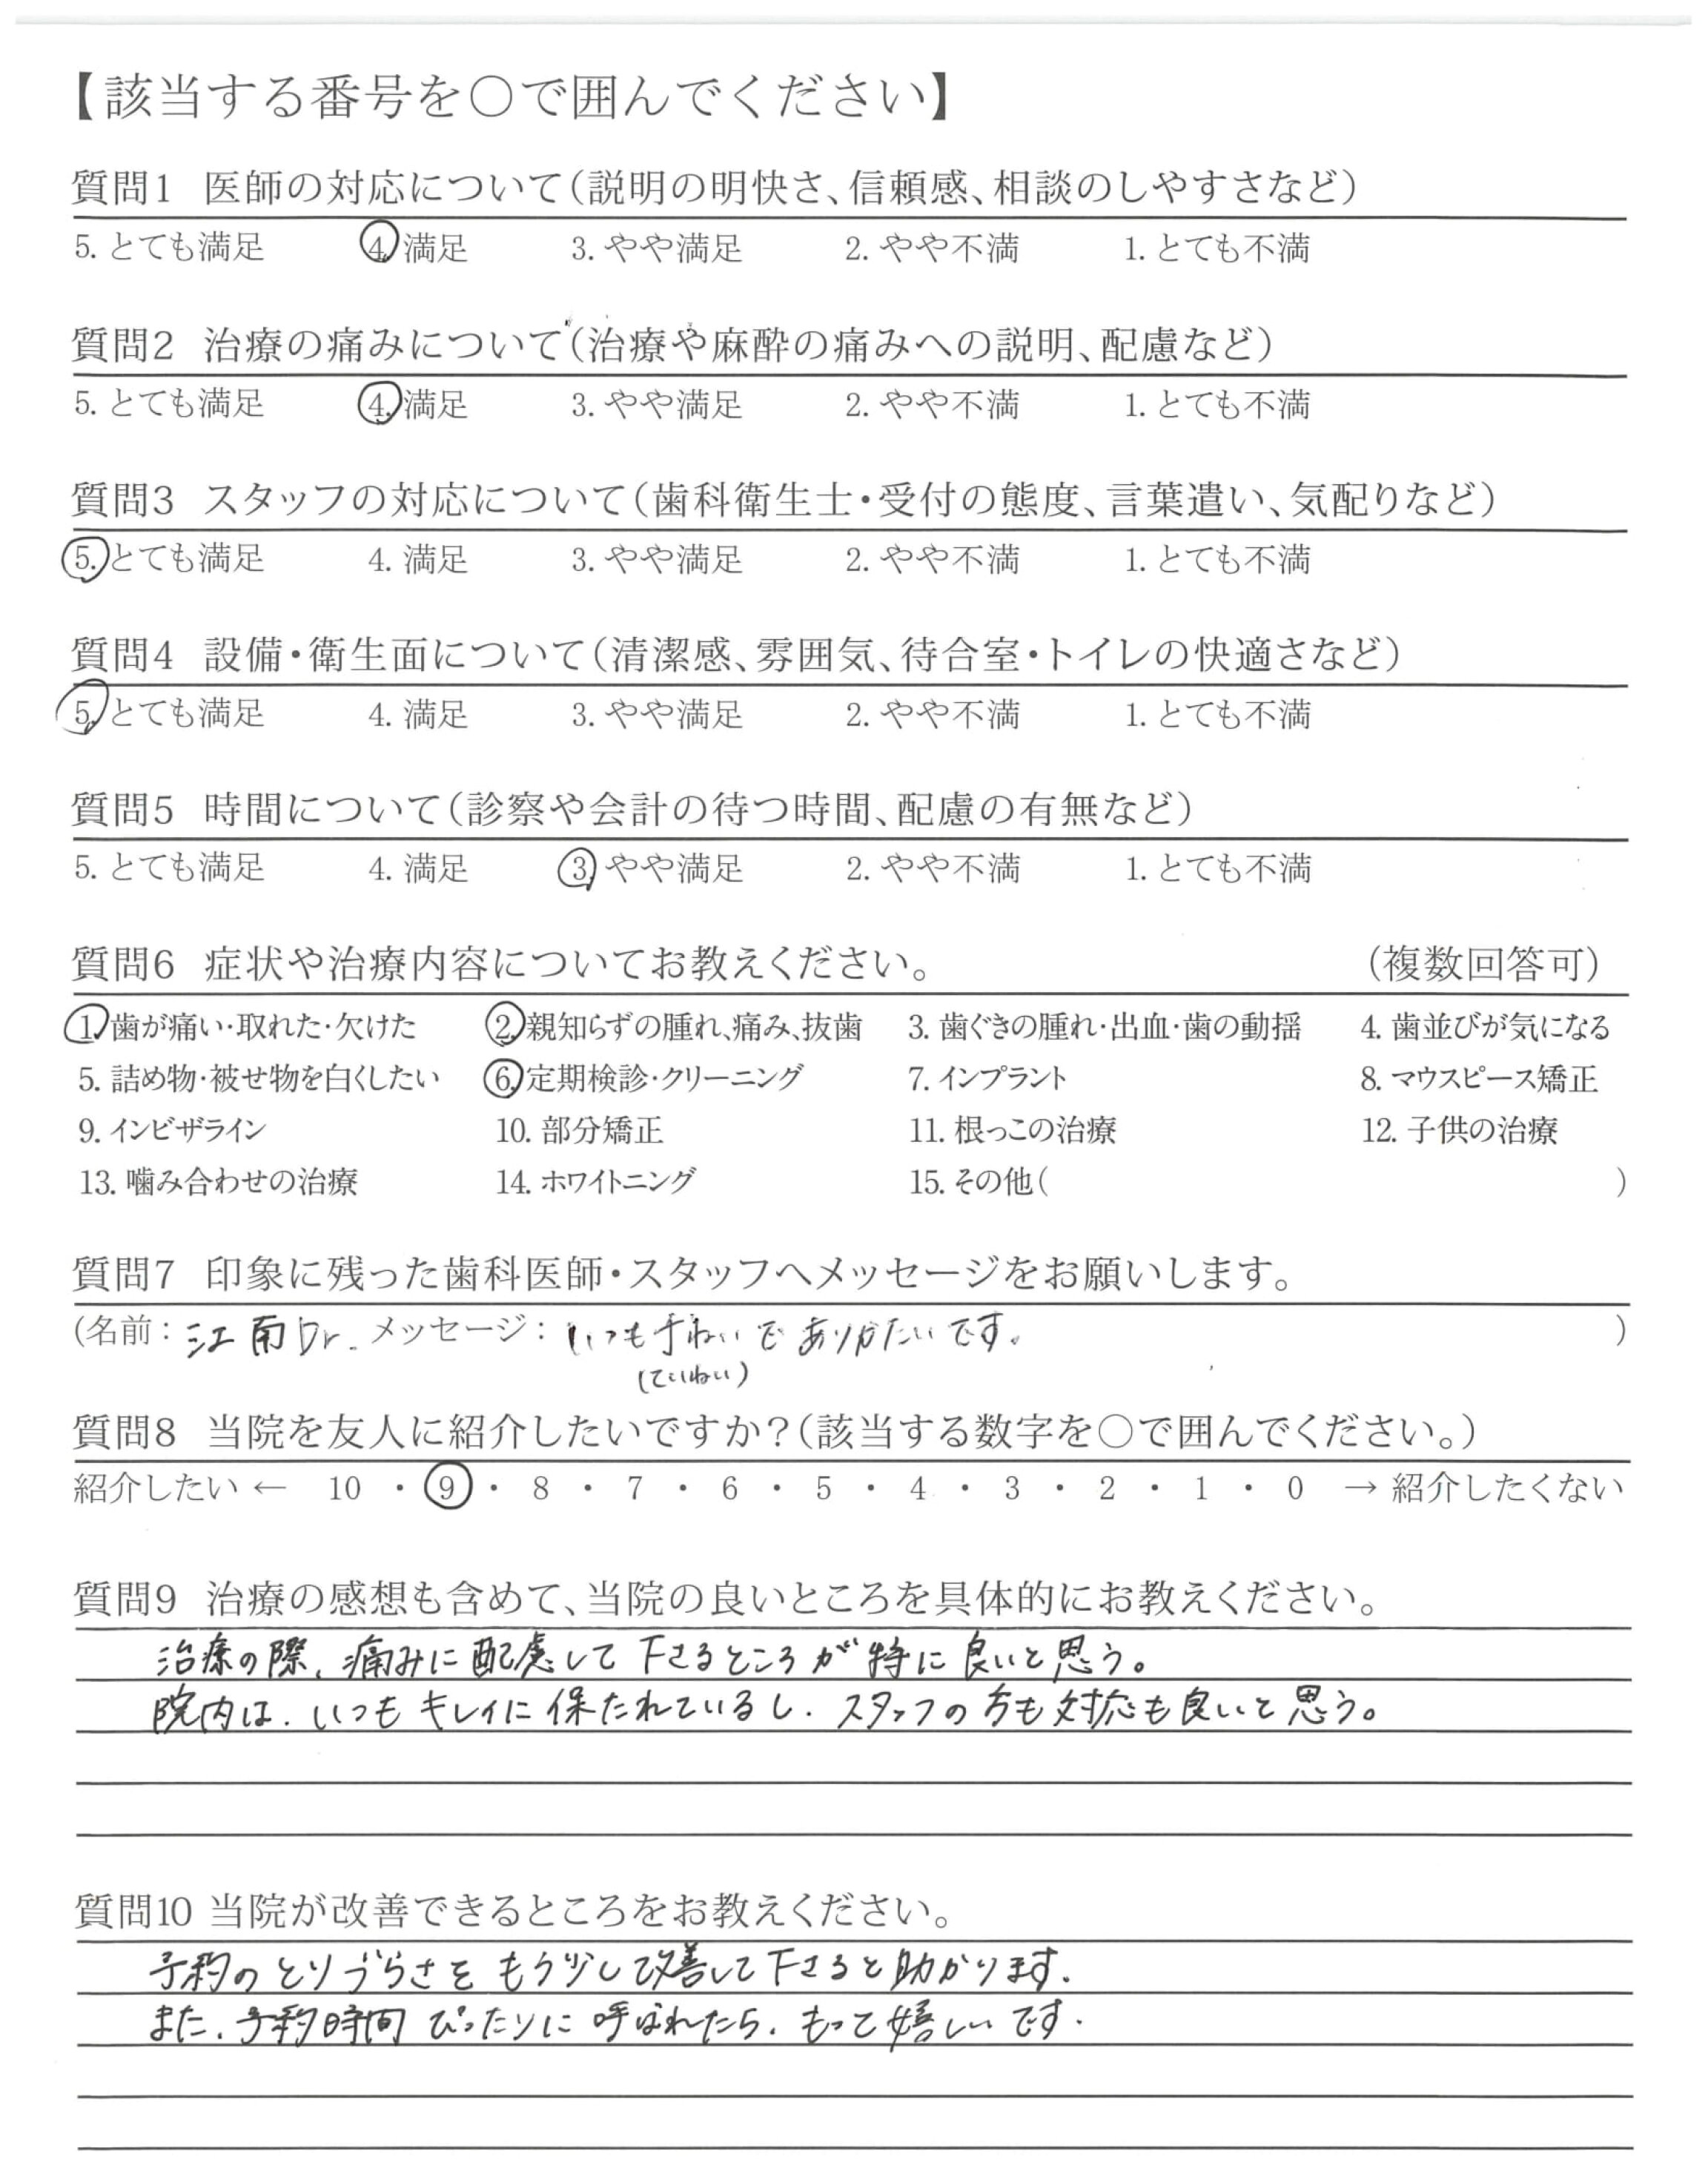 【該当する番号を○で囲んでください】
質問1 医師の対応について（説明の明快さ、信頼感、相談のしやすさなど）
5. とても満足 4. 満足 3. やや満足 2. やや不満 1. とても不満
質問2 治療の痛みについて（治療や麻酔の痛みへの説明、配慮など）
5. とても満足 4. 満足 3. やや満足 2. やや不満 1. とても不満
質問3 スタッフの対応について（歯科衛生士・受付の態度、言葉遣い、気配りなど）
5. とても満足 4. 満足 3. やや満足 2. やや不満 1. とても不満
質問4 設備・衛生面について（清潔感、雰囲気、待合室・トイレの快適さなど）
5. とても満足 4. 満足 3. やや満足 2. やや不満 1. とても不満
質問5 時間について（診察や会計の待つ時間、配慮の有無など）
5. とても満足 4. 満足 3. やや満足 2. やや不満 1. とても不満
質問6 症状や治療内容についてお教えください。 （複数回答可）
1. 歯が痛い・取れた・欠けた 2. 親知らずの腫れ、痛み、抜歯 3. 歯ぐきの腫れ・出血・歯の動揺 4. 歯並びが気になる
5. 詰め物・被せ物を白くしたい 6. 定期検診・クリーニング 7. インプラント 8. マウスピース矯正
9. インビザライン 10. 部分矯正 11. 根っこの治療 12. 子供の治療
13. 噛み合わせの治療 14. ホワイトニング 15. その他（ ）
質問7 印象に残った歯科医師・スタッフへメッセージをお願いします。
（名前：江南Dr. メッセージ：いつも手ねいでありがたいです。 ）
（ていねい）
質問8 当院を友人に紹介したいですか？（該当する数字を○で囲んでください。）
紹介したい ← 10 ・ 9 ・ 8 ・ 7 ・ 6 ・ 5 ・ 4 ・ 3 ・ 2 ・ 1 ・ 0 → 紹介したくない
質問9 治療の感想も含めて、当院の良いところを具体的にお教えください。
治療の際、痛みに配慮して下さるところが特に良いと思う。
院内は、いつもキレイに保たれているし、スタッフの方も対応も良いと思う。
質問10 当院が改善できるところをお教えください。
予約のとりづらさをもう少し改善して下さると助かります。
また、予約時間ぴったりに呼ばれたら、もっと嬉しいです。